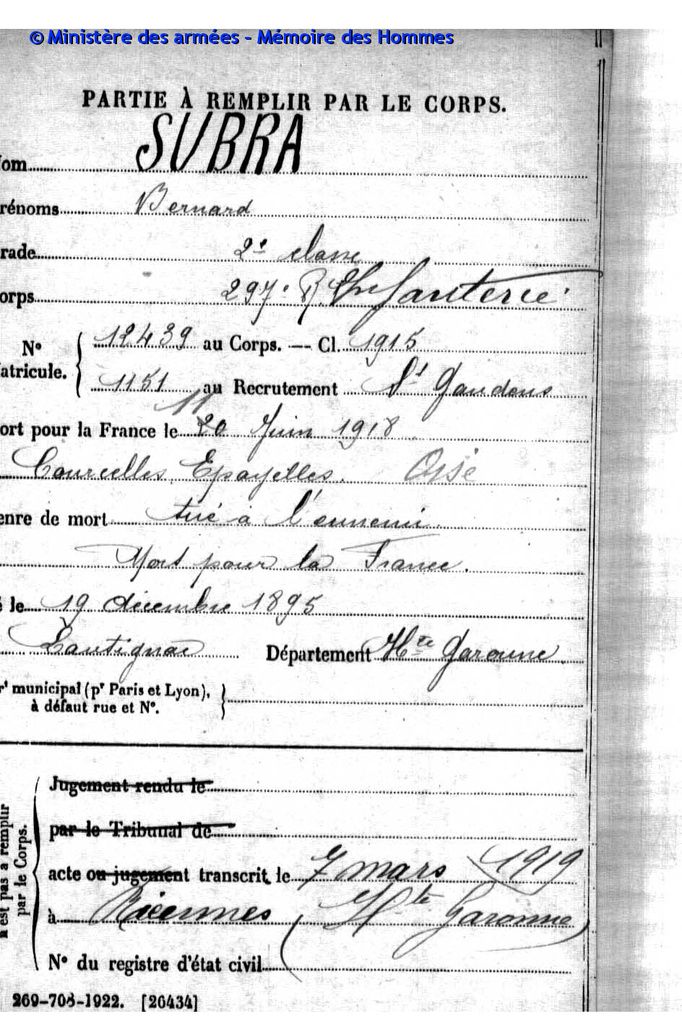 © Ministère des armées - Mémoire des Hommes
PARTIE À REMPLIR PAR LE CORPS.
om SUBRA
rénoms Bernard
rade 2e classe
orps 297e R Infanterie
No 12439 au Corps. — Cl. 1915
atricule. 1151 au Recrutement St Gaudens
11
ort pour la France le 20 Juin 1918
Courcelles Epayelles. Oise
enre de mort tué à l'ennemi
Mort pour la France.
é le 19 décembre 1895
Lautignac Département Hte Garonne
rt municipal (pr Paris et Lyon),
à défaut rue et No.
Jugement rendu le
par le Tribunal de
acte ou jugement transcrit le 7 mars 1919
à Hte Garonne
No du registre d'état civil
n'est pas à remplir
par le Corps.
269-708-1922. [26434]